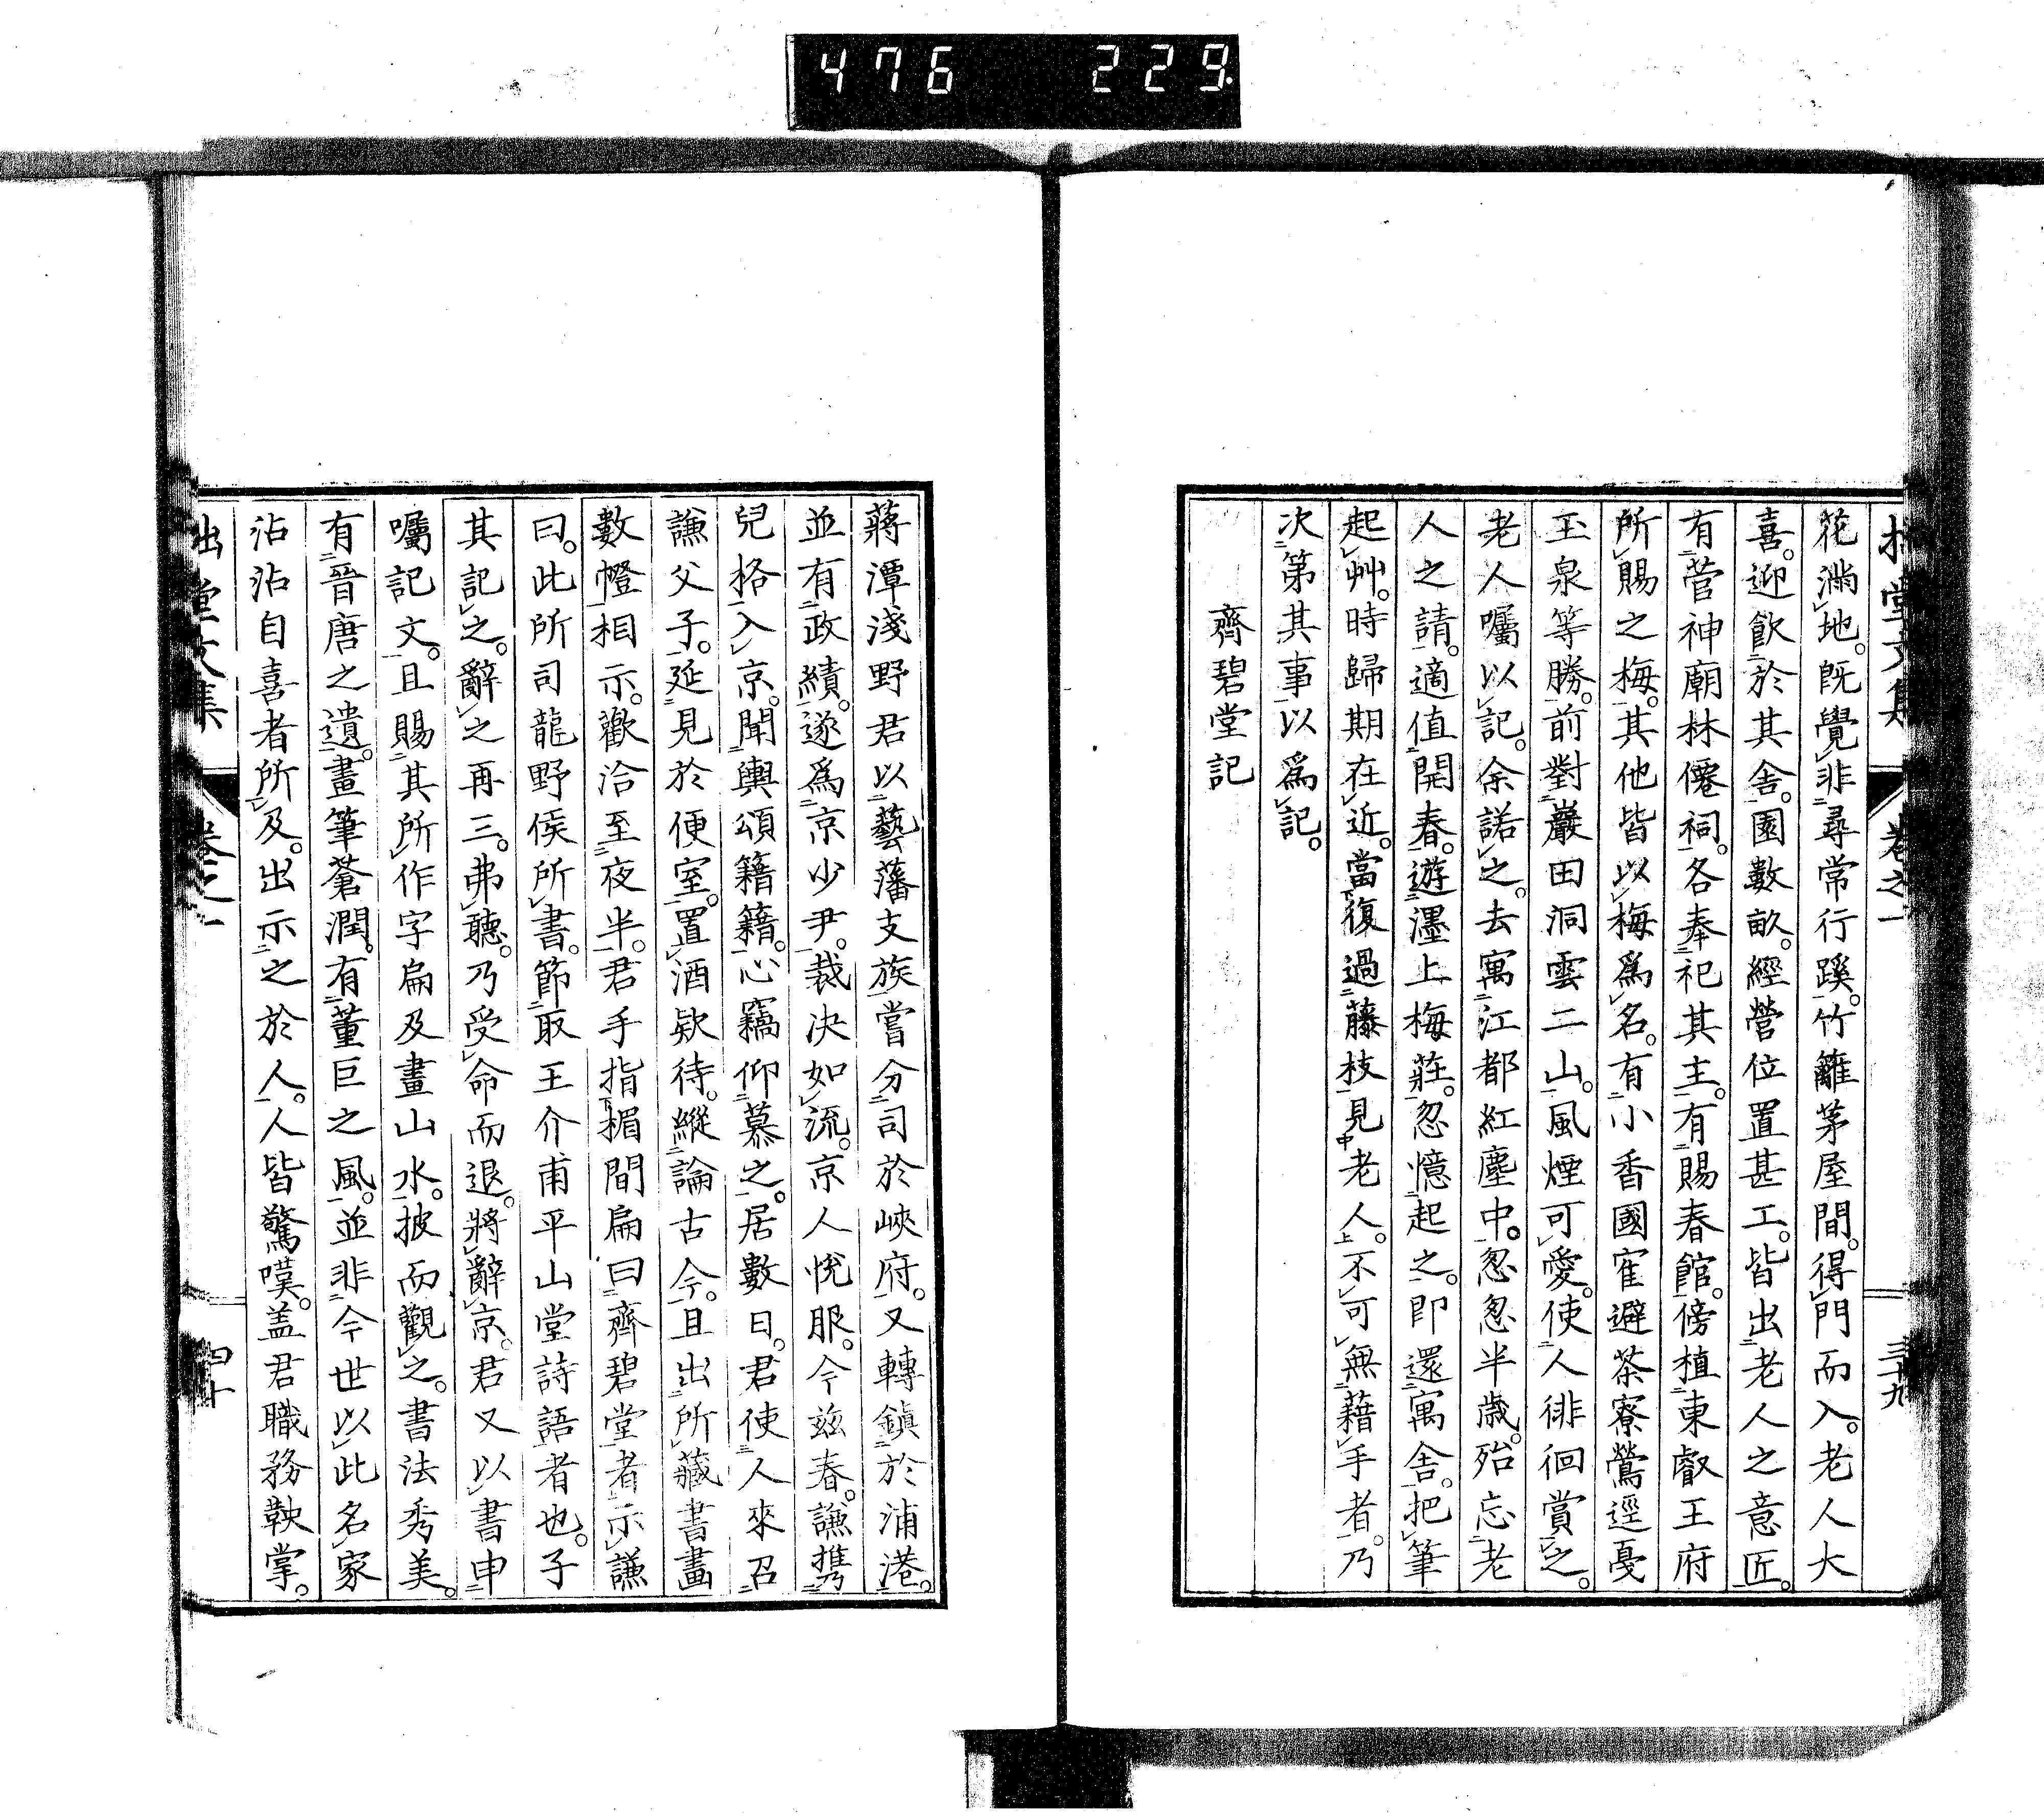 476 229
拙堂文集 卷之一 三十九
花滿地。既覺非尋常行蹊。竹籬茅屋間。得門而入。老人大
喜。迎飲於其舍。園數畝。經營位置甚工。皆出老人之意匠。
有菅神廟林僊祠。各奉祀其主。有賜春館。傍植東叡王府
所賜之梅。其他皆以梅爲名。有小香國寉避茶寮鶯逕憂
玉泉等勝。前對巖田洞雲二山。風煙可愛。使人徘徊賞之。
老人囑以記。余諾之。去寓江都紅塵中。忽忽半歲。殆忘老
人之請。適值開春。遊墨上梅莊。忽憶起之。卽還寓舍。把筆
起艸。時歸期在近。當復過藤枝見老人。不可無藉手者。乃
次第其事以爲記。
齊碧堂記
蔣潭淺野君以藝藩支族嘗分司於峽府。又轉鎭於浦港。
並有政績。遂爲京少尹。裁决如流。京人悅服。今茲春。謙携
兒格入京。聞輿頌籍籍。心竊仰慕之。居數日。君使人來召
謙父子。延見於便室。置酒欵待。縱論古今。且出所藏書畫
數幢相示。歡洽至夜半。君手指楣間扁曰齊碧堂者示謙
曰。此所司龍野侯所書。節取王介甫平山堂詩語者也。子
其記之。辭之再三。弗聽。乃受命而退。將辭京。君又以書申
囑記文。且賜其所作字扁及畫山水。披而觀之。書法秀美。
有晉唐之遺。畫筆蒼潤。有董巨之風。並非今世以此名家
沾沾自喜者所及。出示之於人。人皆驚嘆。盖君職務鞅掌。
拙堂文集 卷之一 四十